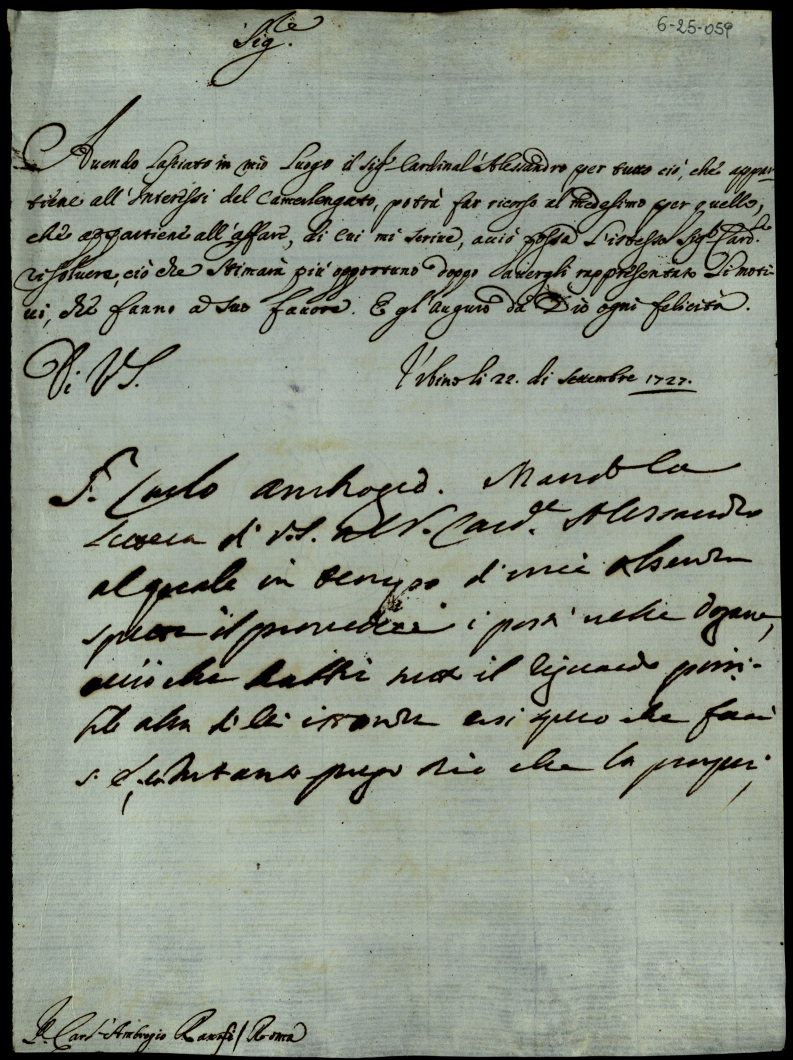 6-25-059
Sig.re
Avendo lasciato in mio luogo il Sig.r Cardinal Alessandro per tutto ciò, che appar-
tiene all'Interessi del Camerlengato, potrà far ricorso al medesimo per quello,
che appartiene all'affare, di cui mi scrive, acciò possa l'istesso Sig.r Card.le
risolvere, ciò che stimarà più opportuno doppo avergli rappresentato li moti-
vi, che fanno a suo favore. E gl'auguro da Dio ogni felicità.
Di V.S. Urbino li 22. di Settembre 1727.
S.r Carlo Ambrogio. Mando la
lettera di V.S. al S.r Card.le Alessandro
al quale in tempo di mia absenza
spetta il provedere i posti nelle Dogane,
acciò che habbi tutto il riguardo possi-
bile alla di lei istanza e così spero che farà
prego Dio che la prosperi
Ambrogio / Roma